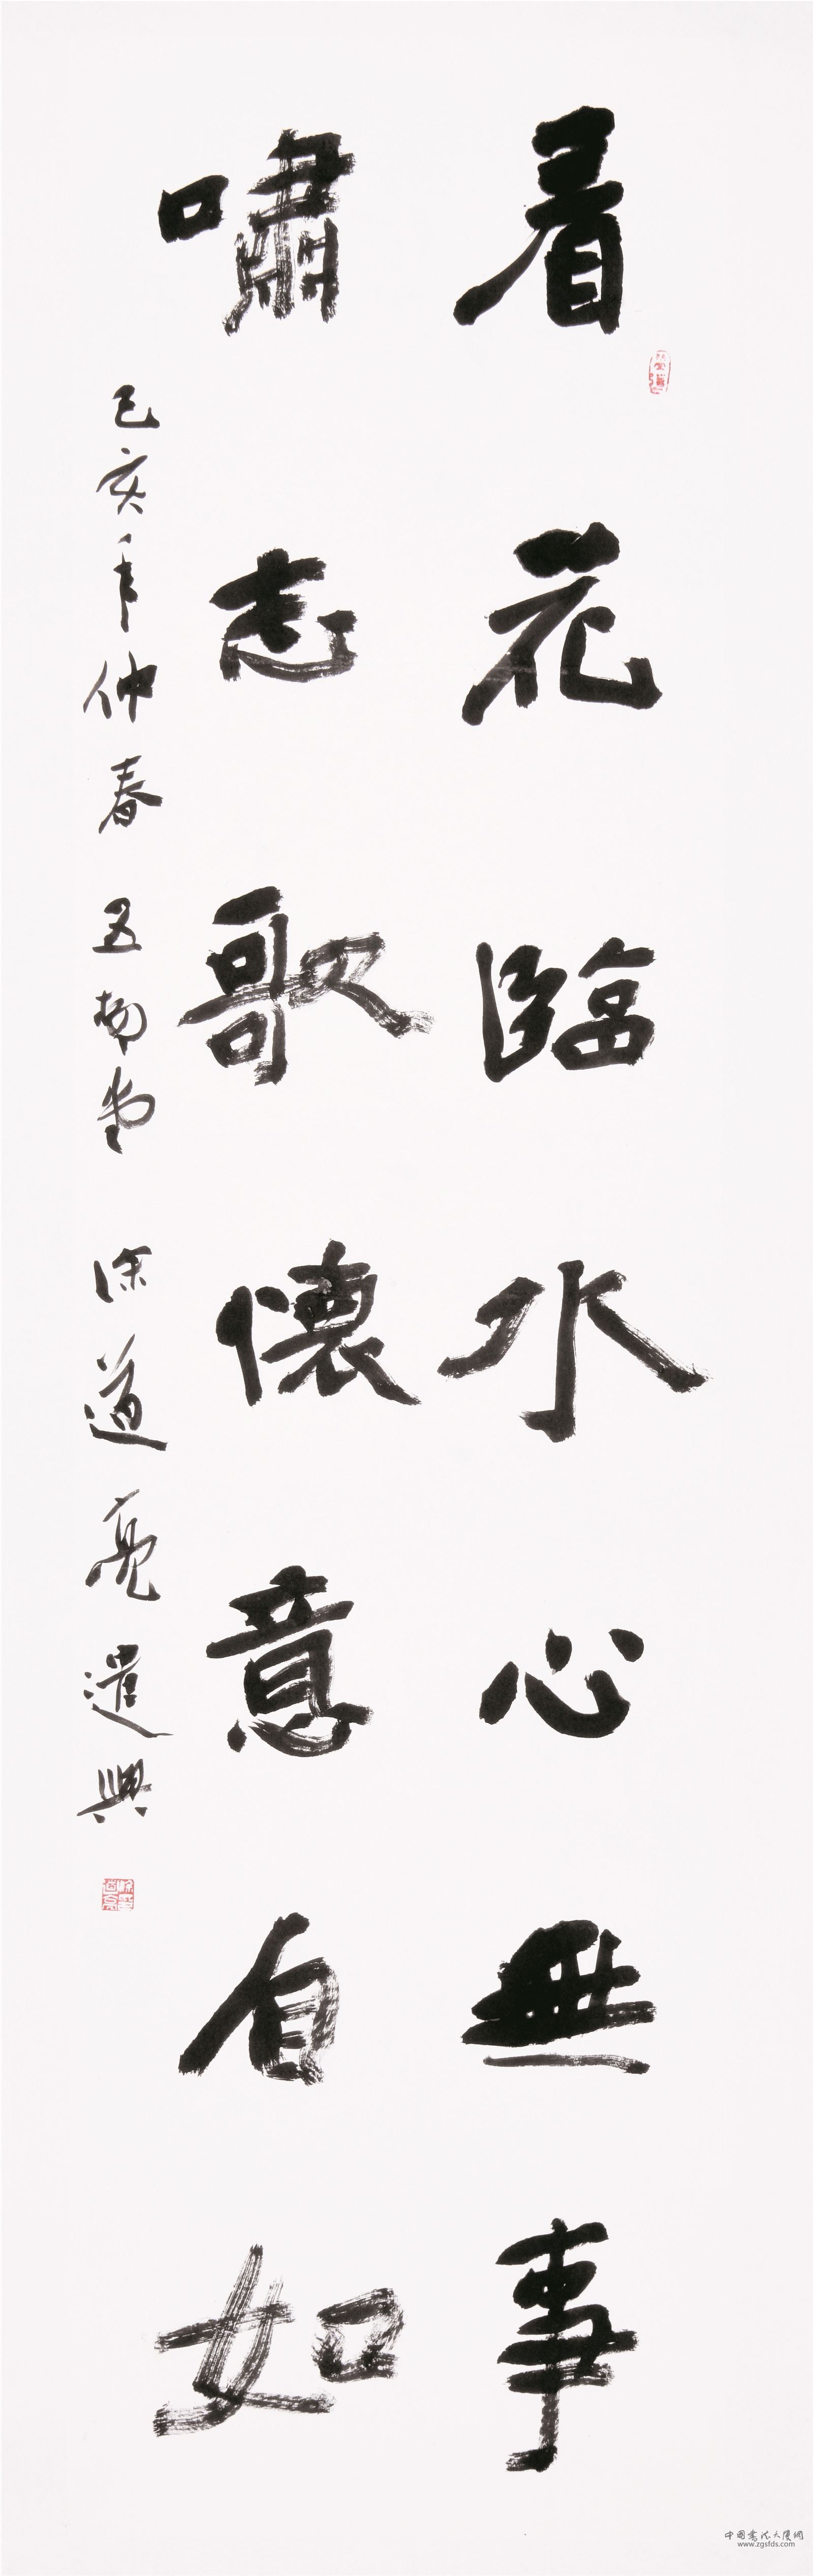 看花臨水心無事
嘯志歌懷意自如
己亥年仲春 五柳堂 徐道亮遣興
中国書法大廈網
www.zgsfds.com